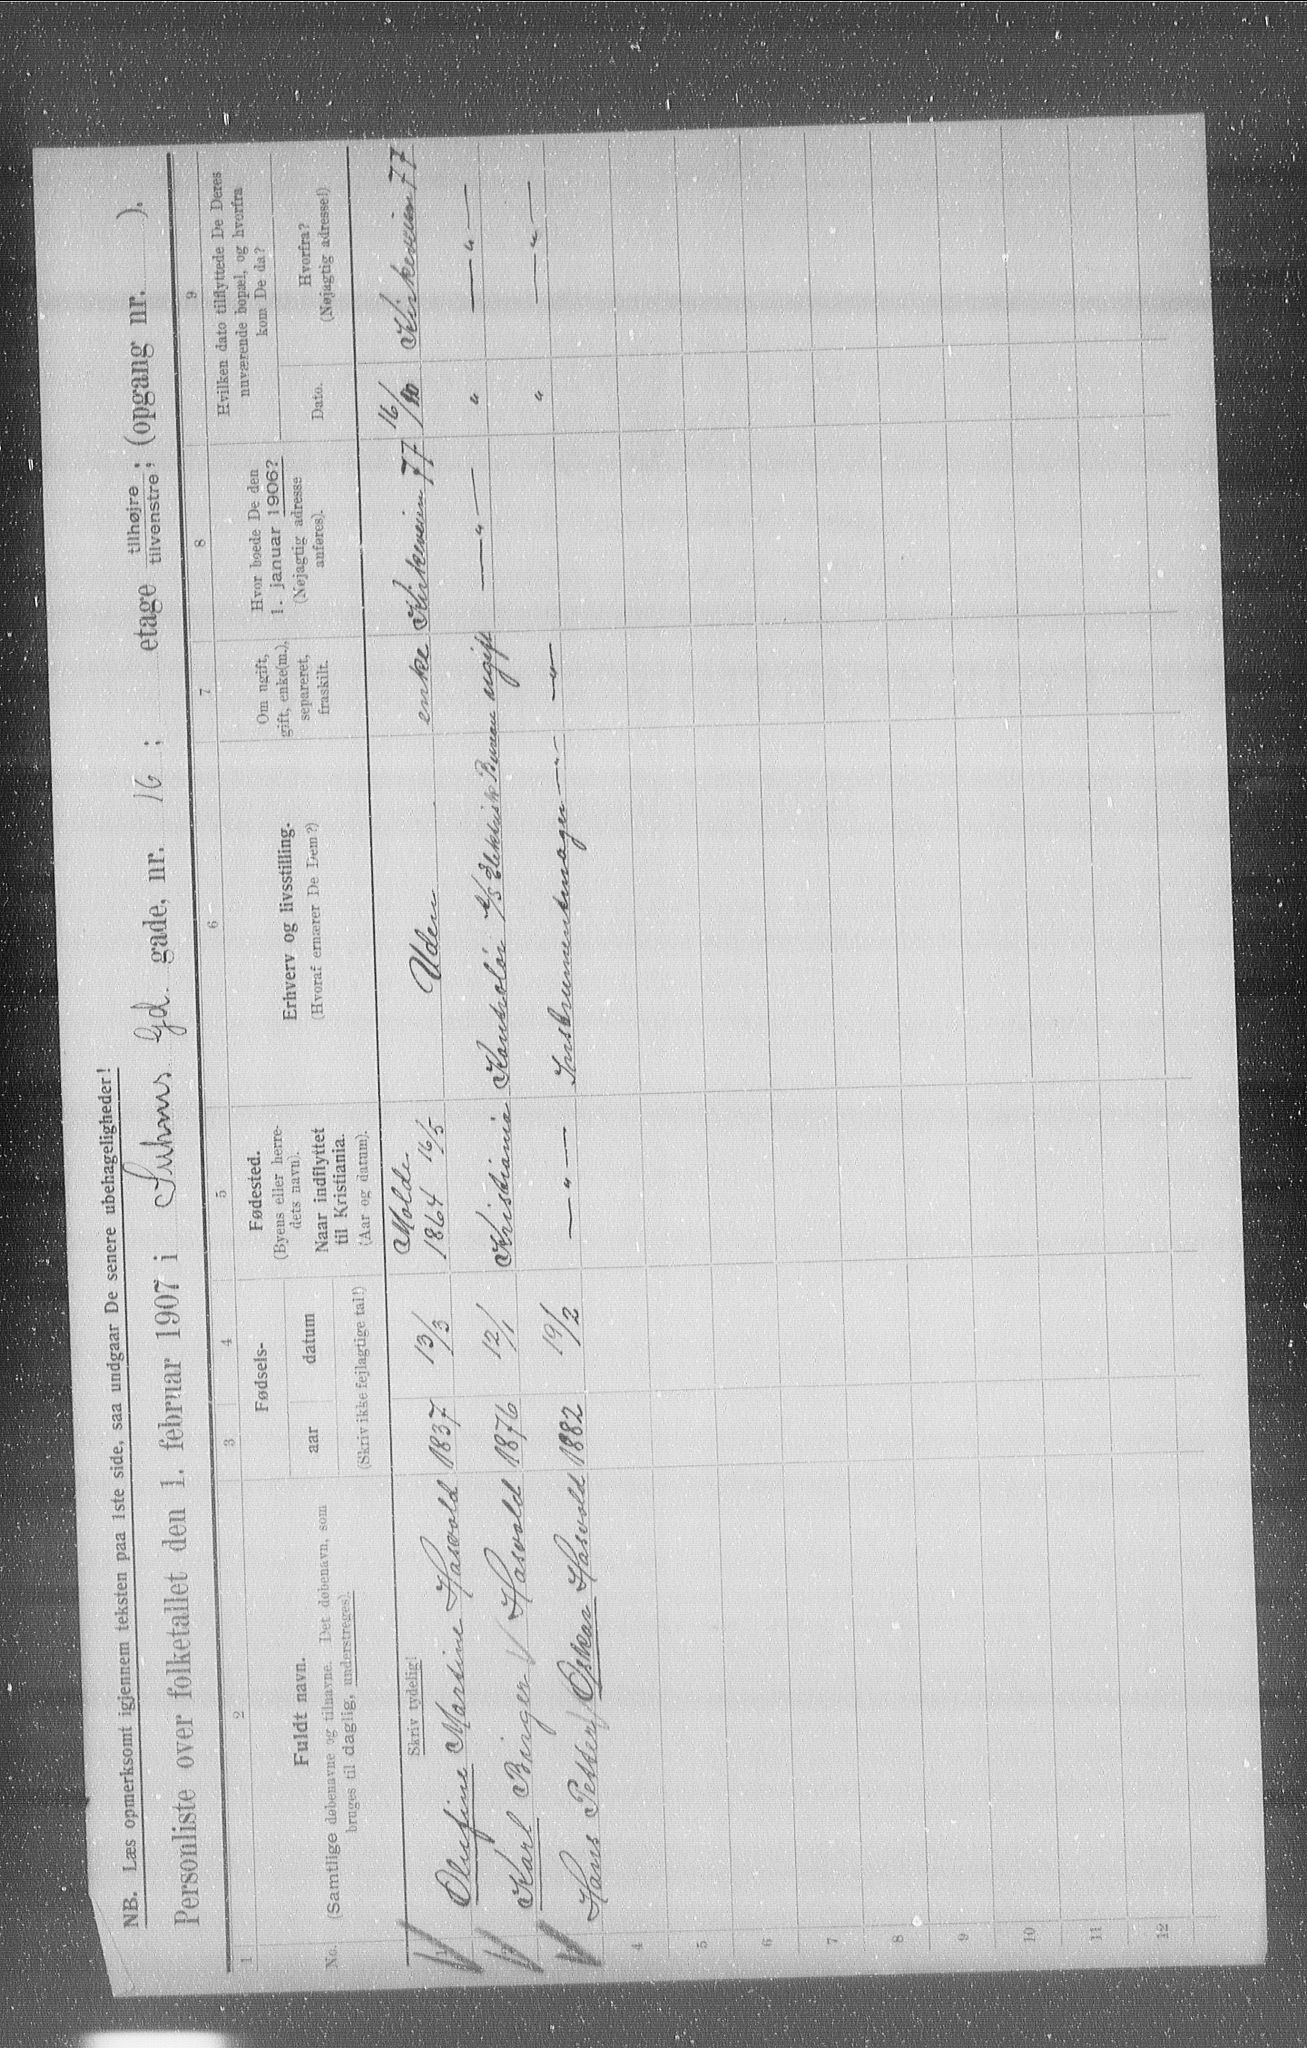 NB. Læs opmerksomt igjennem teksten paa 1ste side, saa undgaar De senere ubehageligheder!
Personliste over folketallet den 1. februar 1907 i Suhms Gd. gade, nr. 16 ; etage tilhøjre ; tilvenstre ; (opgang nr. ).
1 2 3 4 5 6 7 8 9
No.
Fuldt navn.
(Samtlige døbenavne og tilnavne. Det døbenavn, som
bruges til daglig, understreges).
Fødsels-
aar datum
(Skriv ikke fejlagtige tal!)
Fødested.
(Byens eller herre-
dets navn).
Naar indflyttet
til Kristiania.
(Aar og datum).
Erhverv og livsstilling.
(Hvoraf ernærer De Dem?)
Om ugift,
gift, enke(m.),
separeret,
fraskilt.
Hvor boede De den
1. januar 1906?
(Nøjagtig adresse
anføres).
Hvilken dato tilflyttede De Deres
nuværende bopæl, og hvorfra
kom De da?
Dato.
Hvorfra?
(Nøjagtig adresse!)
Skriv tydelig!
1 Olufine Martine Hasvold 1837 13/3 Molde 1864 16/5 Uden enke Kirkeveien 77 16/10 Kirkeveien 77
2 Karl Birger Hasvold 1876 12/1 Kristiania Kontrolør A/S Elektrisk Bureau ugift —"— " —"—
3 Hans Petter Oskar Hasvold 1882 19/2 —"— Instrumentmager —"— —"— " —"—
4
5
6
7
8
9
10
11
12